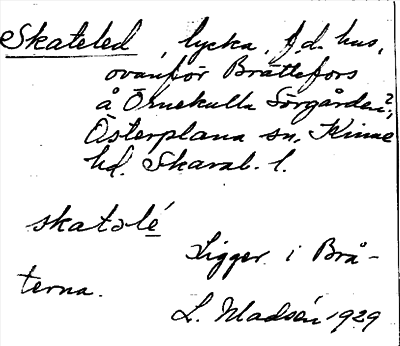 Skateled, lycka, f.d. hus,
ovanför Brattefors
å Örnekulla Sörgården?,
Österplana sn, Kinne
hd. Skarab. l.
skatəlé
Ligger i Brå-
terna.
L. Madsén 1929